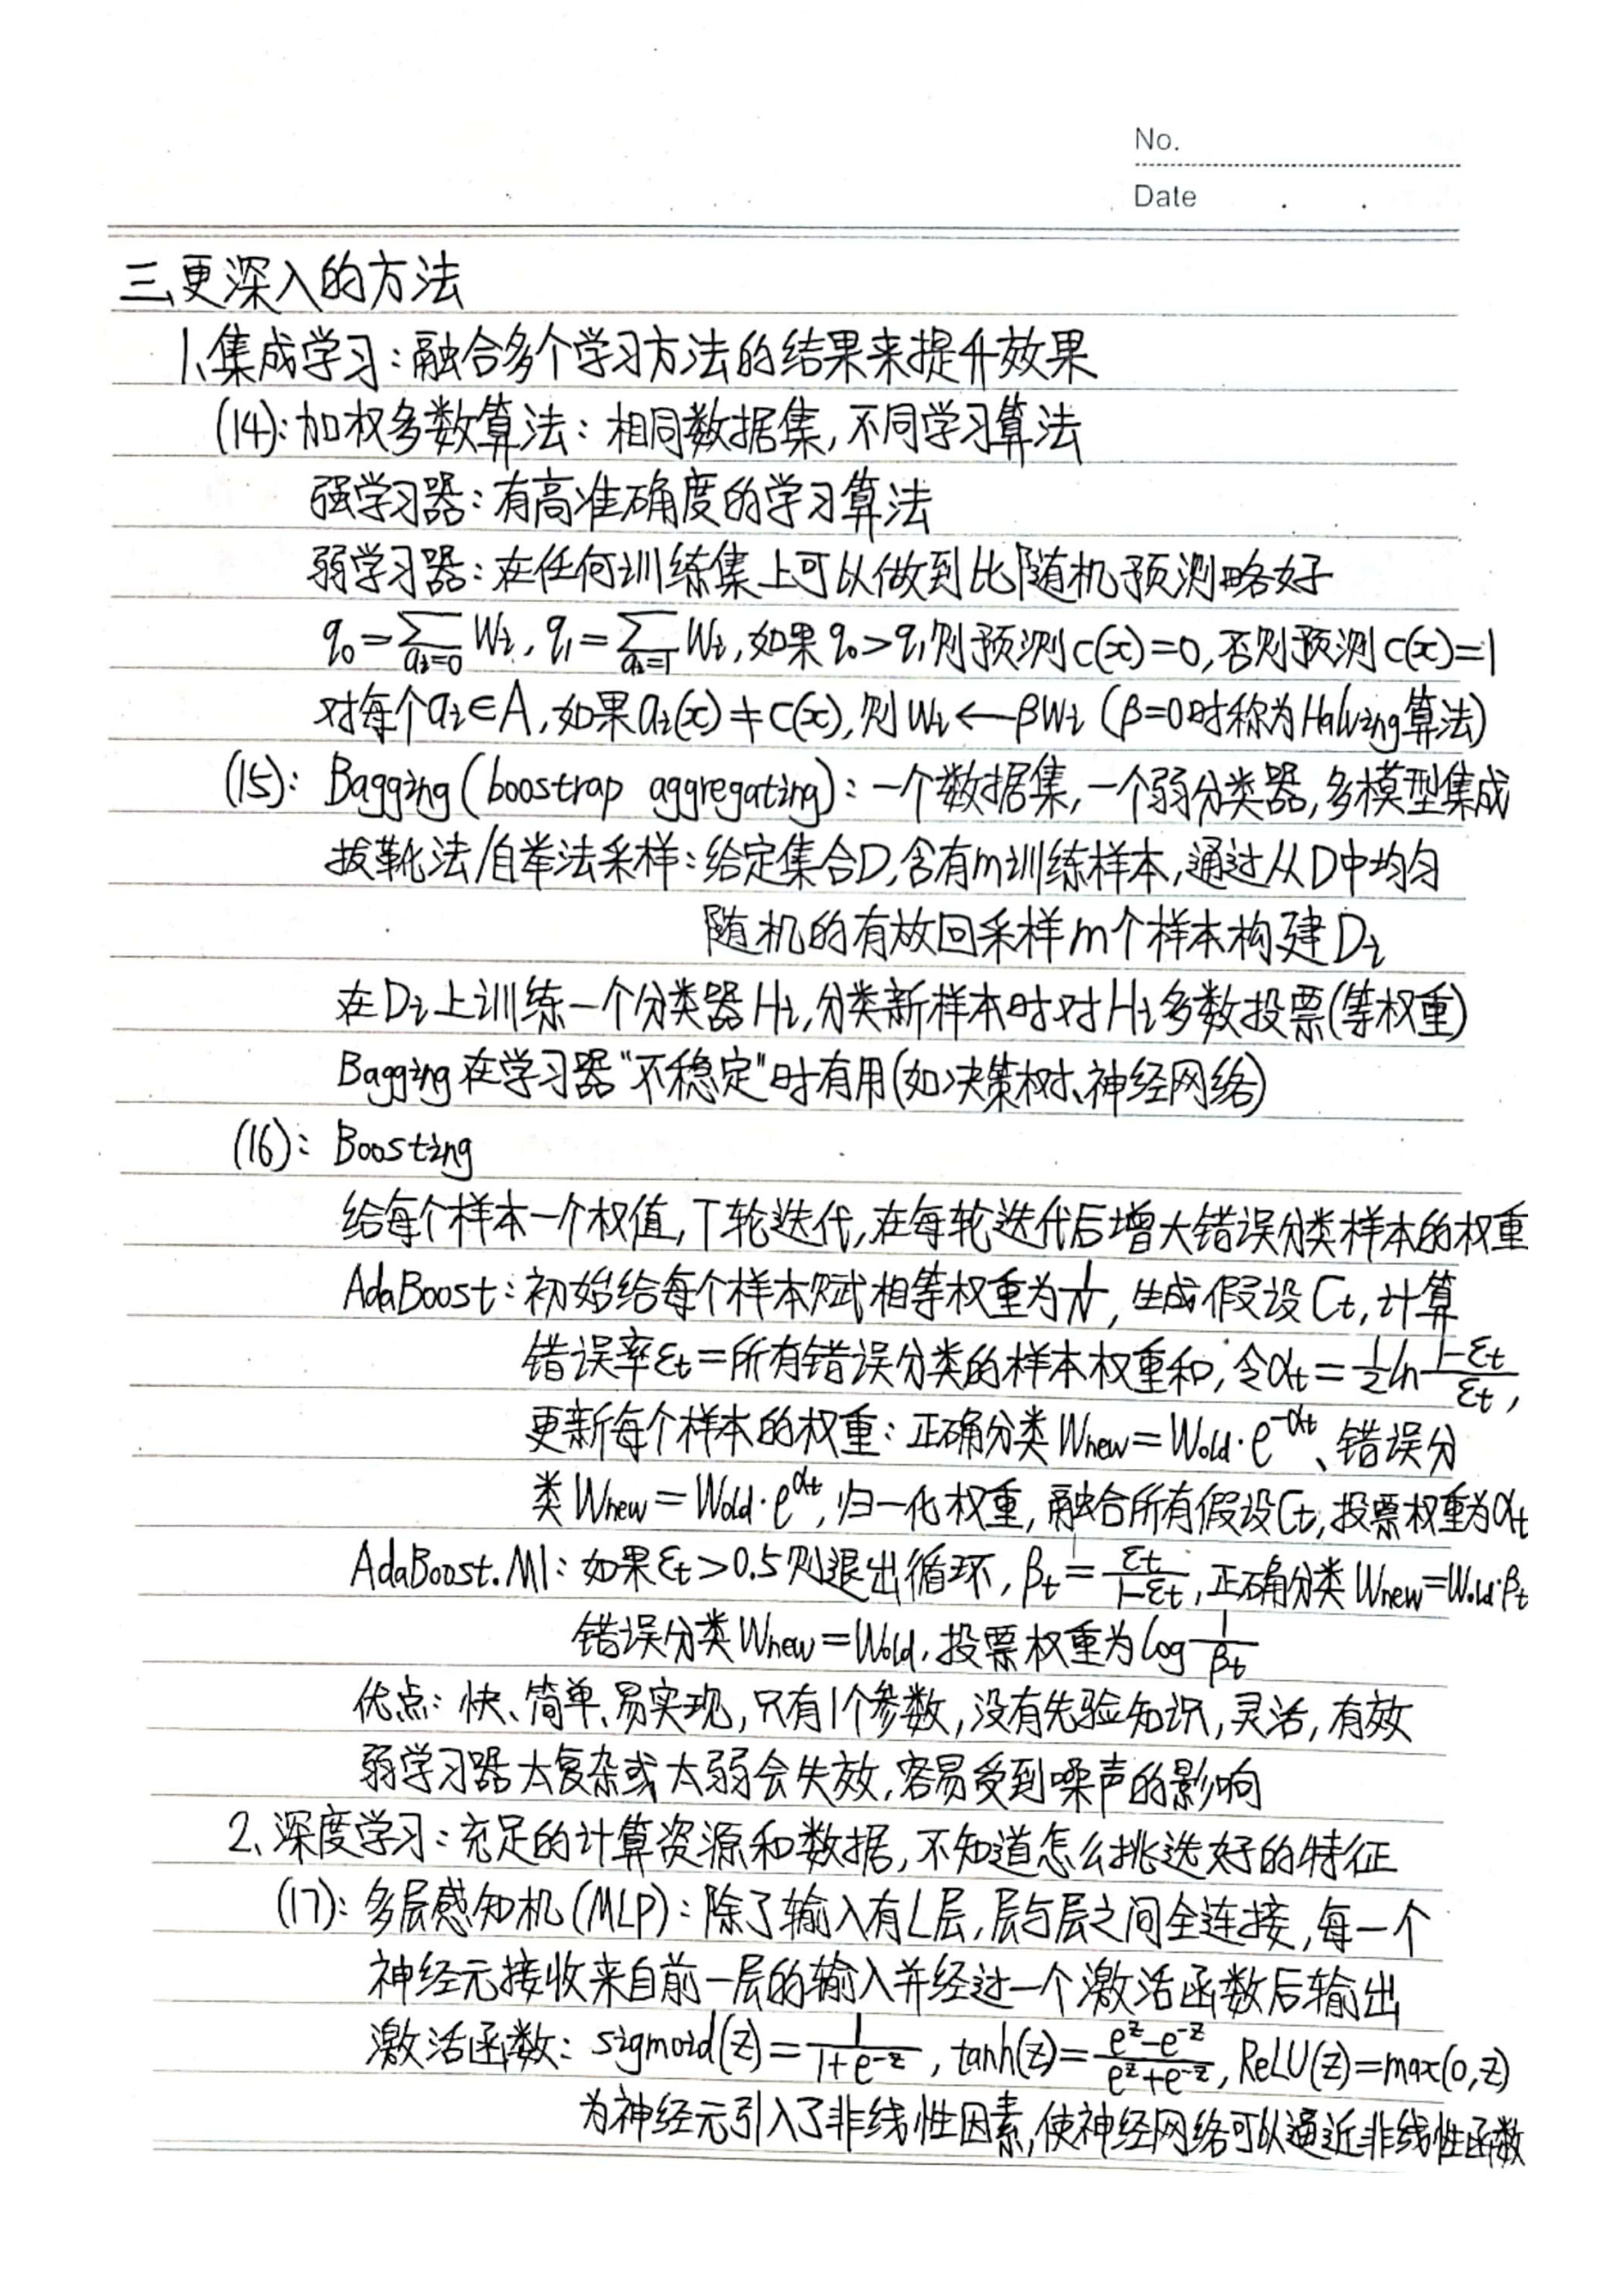 No.
Date . .
三、更深入的方法
1、集成学习：融合多个学习方法的结果来提升效果
(14)：加权多数算法：相同数据集，不同学习算法
强学习器：有高准确度的学习算法
弱学习器：在任何训练集上可以做到比随机预测略好
q₀=∑_{aᵢ=0} Wᵢ, q₁=∑_{aᵢ=1} Wᵢ, 如果q₀>q₁则预测c(x)=0, 否则预测c(x)=1
对每个aᵢ∈A, 如果aᵢ(x)≠c(x), 则Wᵢ←βWᵢ (β=0时称为Halving算法)
(15)： Bagging(boostrap aggregating)：一个数据集，一个弱分类器，多模型集成
拔靴法/自举法采样：给定集合D，含有m训练样本，通过从D中均匀
随机的有放回采样m个样本构建Dᵢ
在Dᵢ上训练一个分类器Hᵢ, 分类新样本时对Hᵢ多数投票(等权重)
Bagging在学习器“不稳定”时有用(如决策树、神经网络)
(16)： Boosting
给每个样本一个权值，T轮迭代，在每轮迭代后增大错误分类样本的权重
AdaBoost：初始给每个样本赋相等权重为1/N, 生成假设Cₜ, 计算
错误率εₜ=所有错误分类的样本权重和，令αₜ=½ln (1-εₜ)/εₜ,
更新每个样本的权重：正确分类Wnew=Wold·e^{-αₜ}、错误分
类Wnew=Wold·e^{αₜ}, 归一化权重，融合所有假设Cₜ, 投票权重为αₜ
AdaBoost.M1：如果εₜ>0.5则退出循环，βₜ=εₜ/(1-εₜ), 正确分类Wnew=Wold·βₜ
错误分类Wnew=Wold, 投票权重为log 1/βₜ
优点：快、简单、易实现，只有1个参数，没有先验知识，灵活，有效
弱学习器太复杂或太弱会失效，容易受到噪声的影响
2、深度学习：充足的计算资源和数据，不知道怎么挑选好的特征
(17)：多层感知机(MLP)：除了输入有L层，层与层之间全连接，每一个
神经元接收来自前一层的输入并经过一个激活函数后输出
激活函数：sigmoid(z)=1/(1+e^{-z}), tanh(z)=(e^z-e^{-z})/(e^z+e^{-z}), ReLU(z)=max(0,z)
为神经元引入了非线性因素，使神经网络可以逼近非线性函数